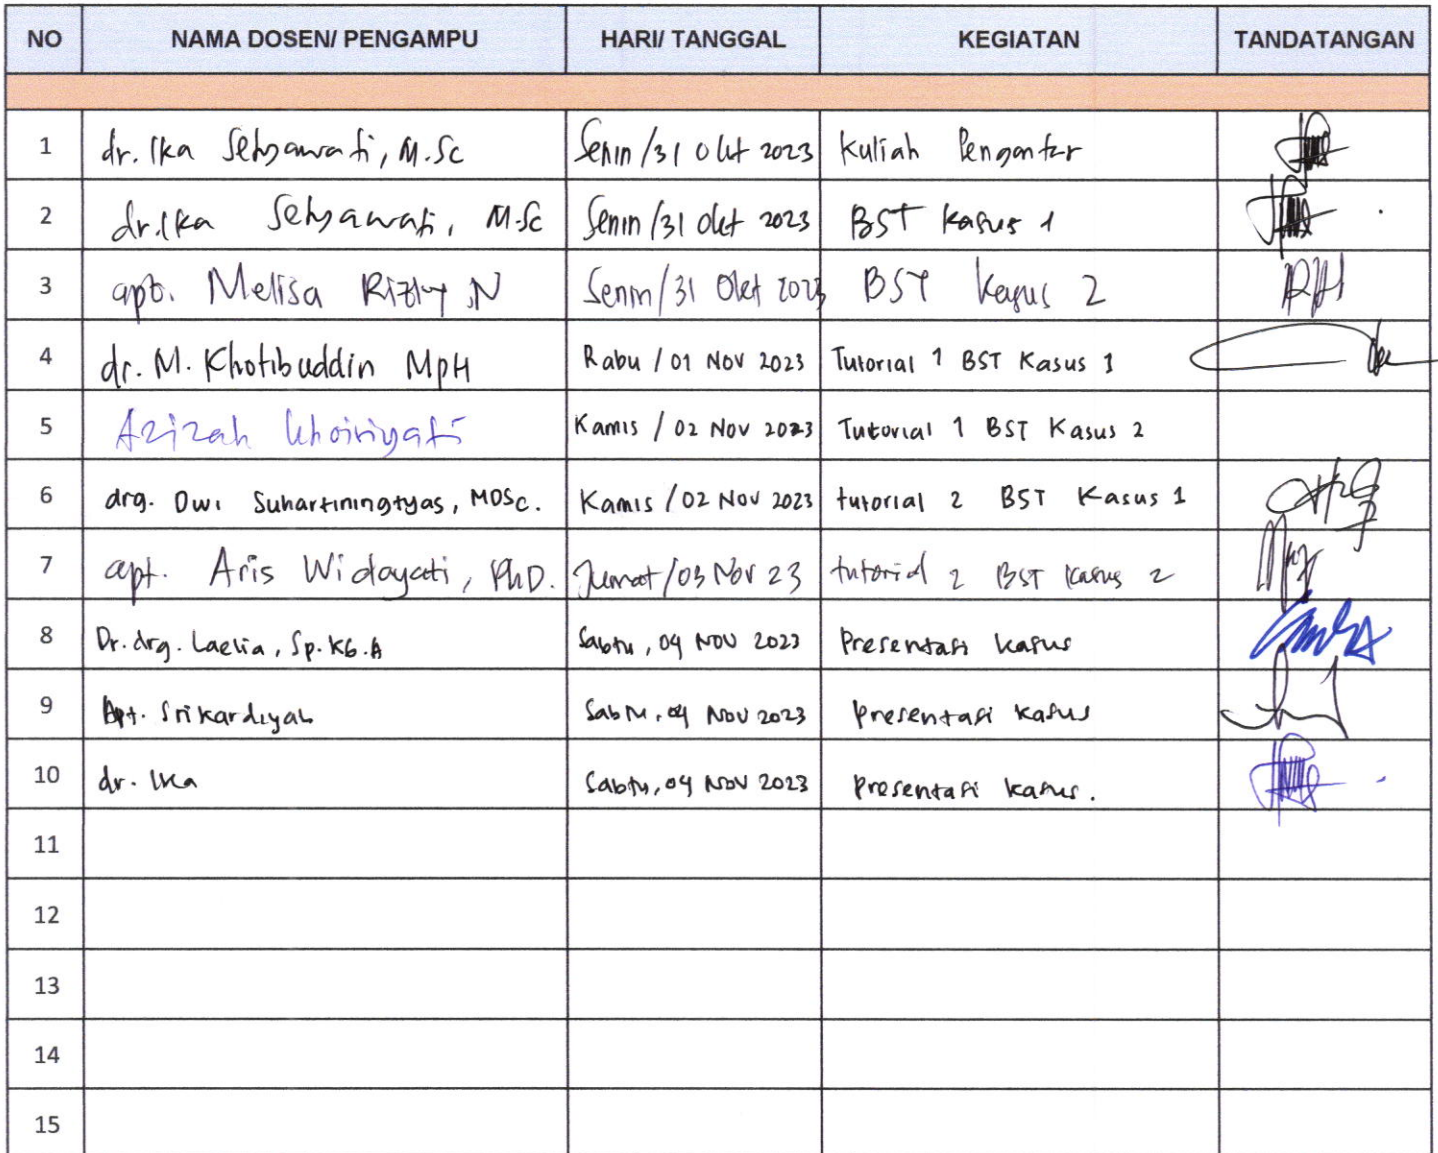 NO NAMA DOSEN/ PENGAMPU HARI/ TANGGAL KEGIATAN TANDATANGAN
1 dr. Ika Setyawati, M.Sc Senin/31 Okt 2023 Kuliah Pengantar
2 dr. Ika Setyawati, M.Sc Senin/31 Okt 2023 BST Kasus 1
3 apt. Melisa Rizky N Senin/31 Okt 2023 BST Kasus 2
4 dr. M. Khotibuddin MPH Rabu / 01 Nov 2023 Tutorial 1 BST Kasus 1
5 Azizah Khoiriyati Kamis / 02 Nov 2023 Tutorial 1 BST Kasus 2
6 drg. Dwi Suhartiningtyas, MDSc. Kamis / 02 Nov 2023 tutorial 2 BST Kasus 1
7 apt. Aris Widayati, PhD. Jumat/03 Nov 23 tutorial 2 BST Kasus 2
8 Dr. drg. Laelia, Sp.KG.A Sabtu, 04 Nov 2023 Presentasi kasus
9 Apt. Sri Kardiyah Sabtu, 04 Nov 2023 Presentasi kasus
10 dr. Ika Sabtu, 04 Nov 2023 Presentasi kasus.
11
12
13
14
15